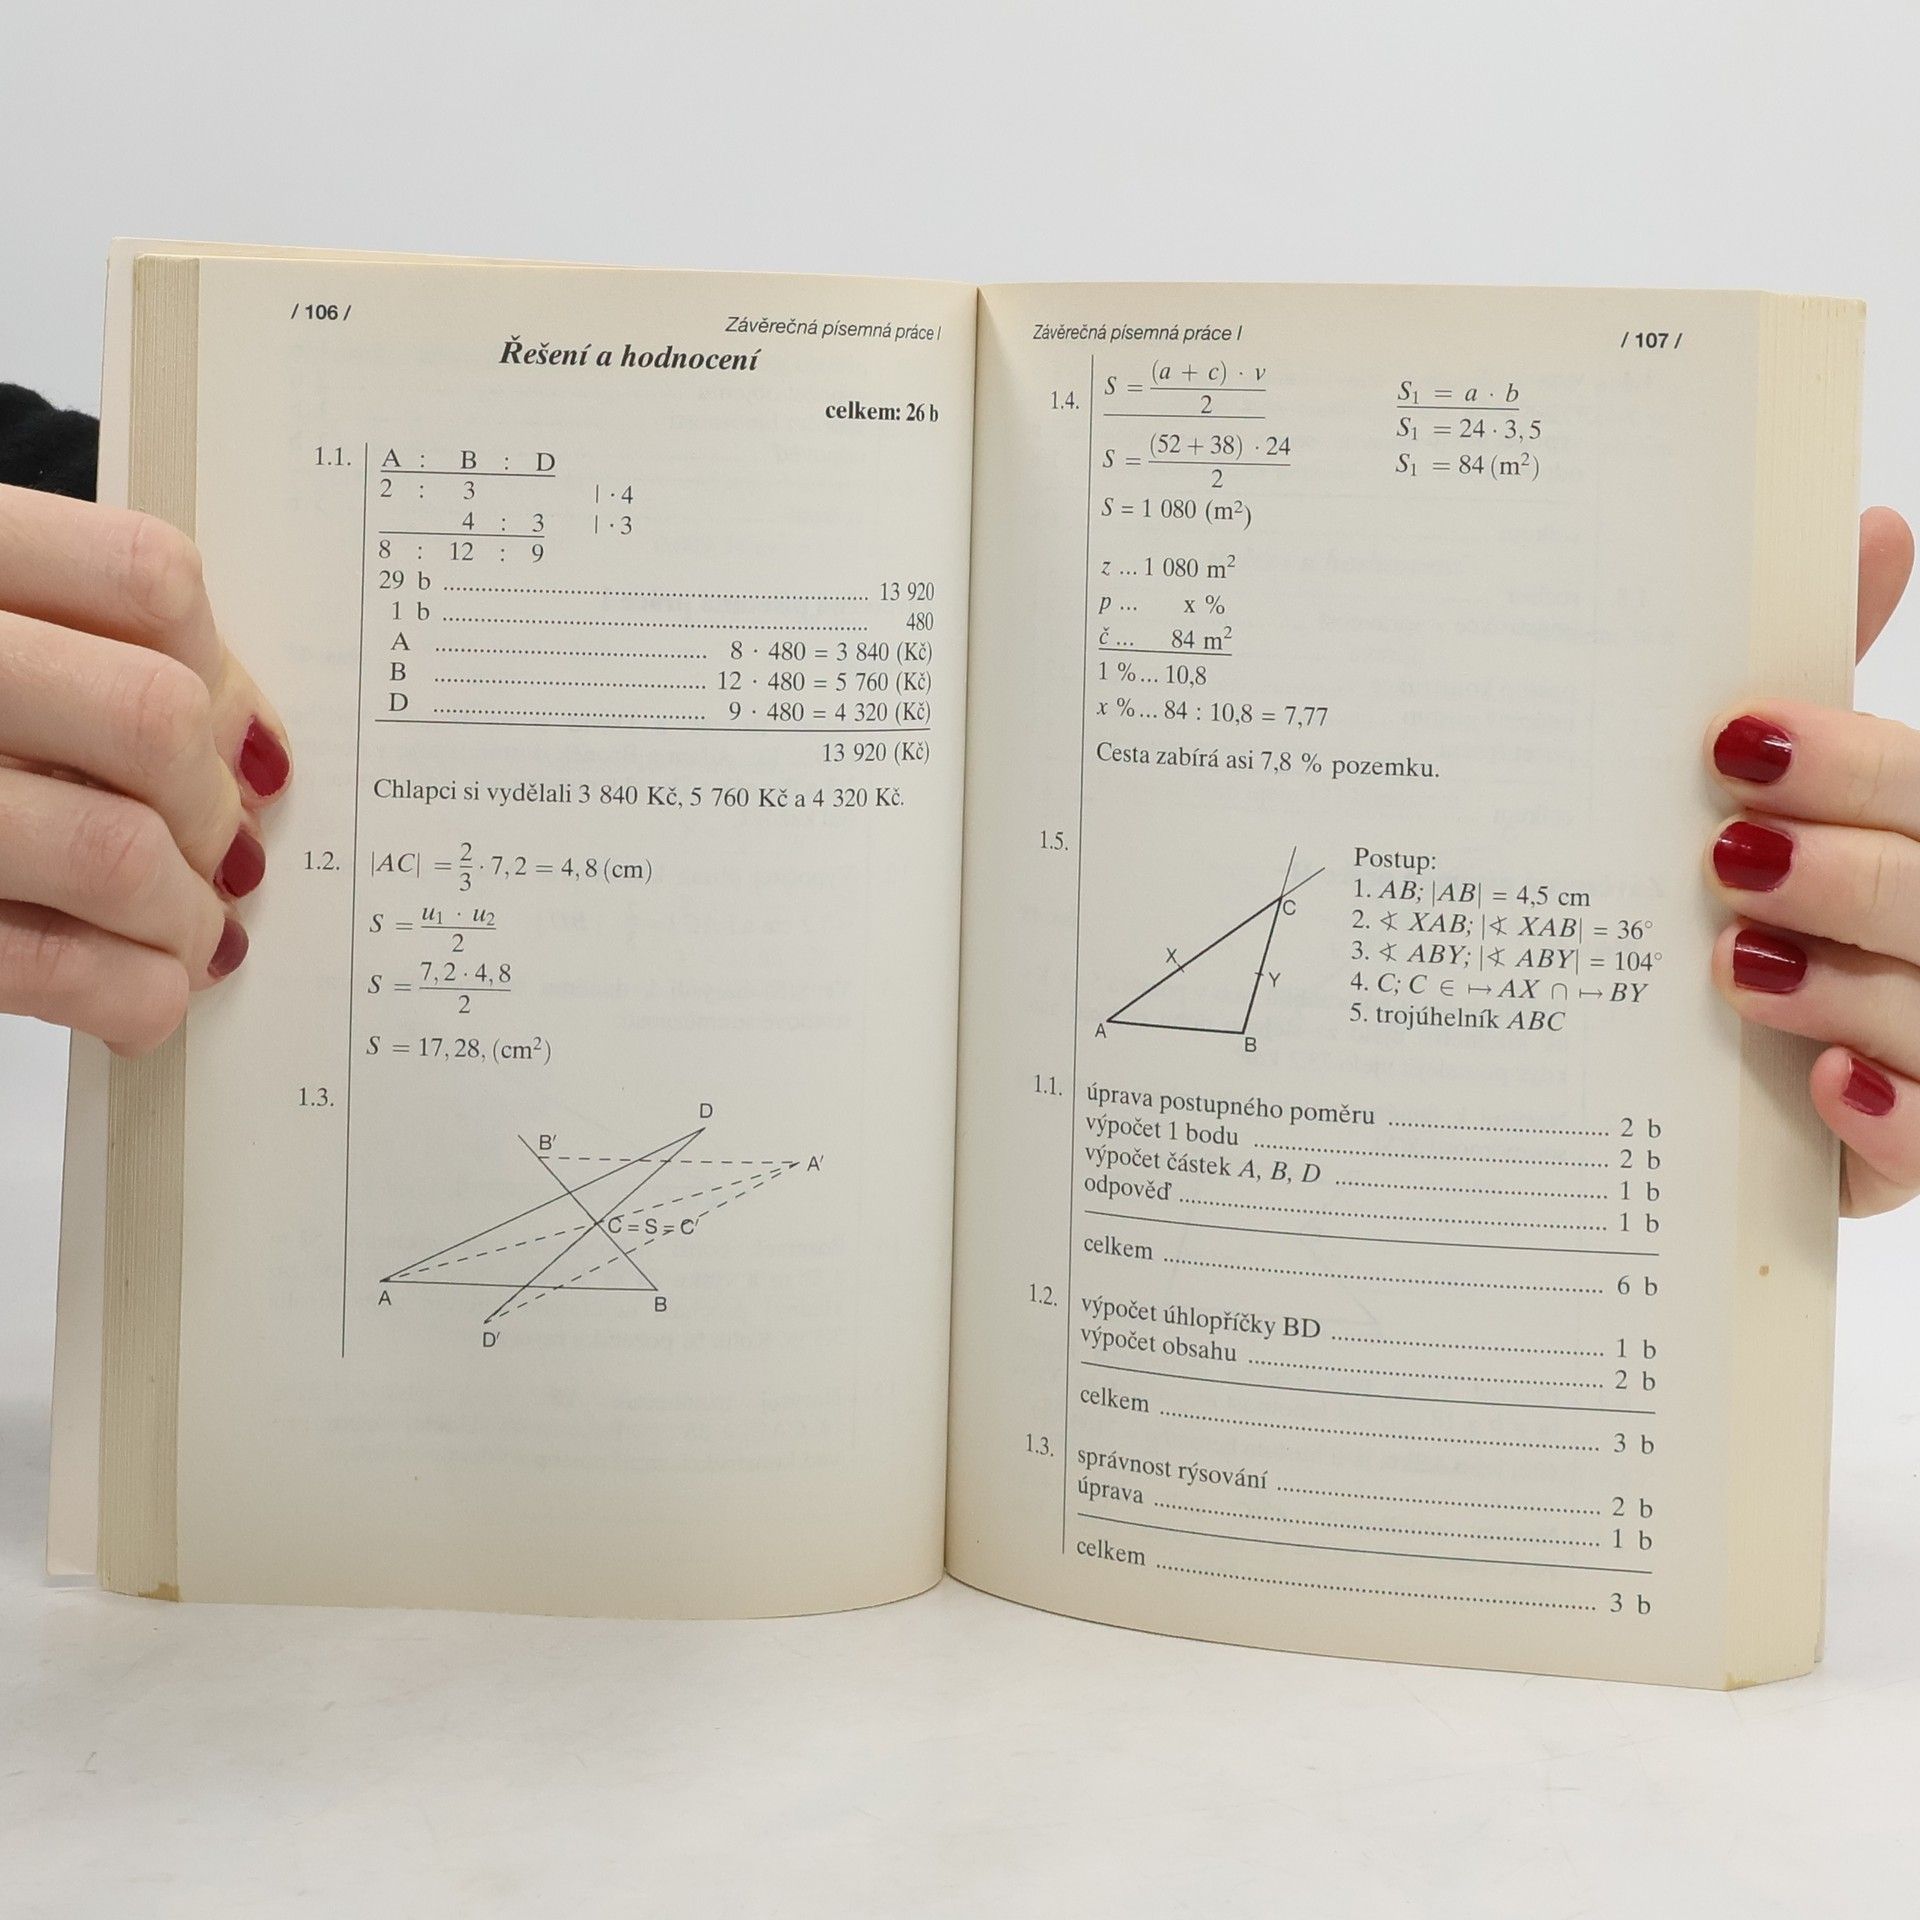 / 106 /
Závěrečná písemná práce I
Řešení a hodnocení
celkem: 26 b
1.1. A : B : D
2 : 3 | · 4
4 : 3 | · 3
8 : 12 : 9
29 b .......... 13 920
1 b .......... 480
A .......... 8 · 480 = 3 840 (Kč)
B .......... 12 · 480 = 5 760 (Kč)
D .......... 9 · 480 = 4 320 (Kč)
13 920 (Kč)
Chlapci si vydělali 3 840 Kč, 5 760 Kč a 4 320 Kč.
1.2. |AC| = 2/3 · 7,2 = 4,8 (cm)
S = u₁ · u₂ / 2
S = 7,2 · 4,8 / 2
S = 17,28, (cm²)
1.3.
D
B′
A′
C = S = C′
A
B
D′
Závěrečná písemná práce I
/ 107 /
1.4. S = (a + c) · v / 2
S = (52 + 38) · 24 / 2
S = 1 080 (m²)
S₁ = a · b
S₁ = 24 · 3,5
S₁ = 84 (m²)
z ... 1 080 m²
p ... x %
č ... 84 m²
1 % ... 10,8
x % ... 84 : 10,8 = 7,77
Cesta zabírá asi 7,8 % pozemku.
1.5.
C
X
Y
A
B
Postup:
1. AB; |AB| = 4,5 cm
2. ∢ XAB; |∢ XAB| = 36°
3. ∢ ABY; |∢ ABY| = 104°
4. C; C ∈ ↦ AX ∩ ↦ BY
5. trojúhelník ABC
1.1. úprava postupného poměru .......... 2 b
výpočet 1 bodu .......... 2 b
výpočet částek A, B, D .......... 1 b
odpověď .......... 1 b
celkem .......... 6 b
1.2. výpočet úhlopříčky BD .......... 1 b
výpočet obsahu .......... 2 b
celkem .......... 3 b
1.3. správnost rýsování .......... 2 b
úprava .......... 1 b
celkem .......... 3 b